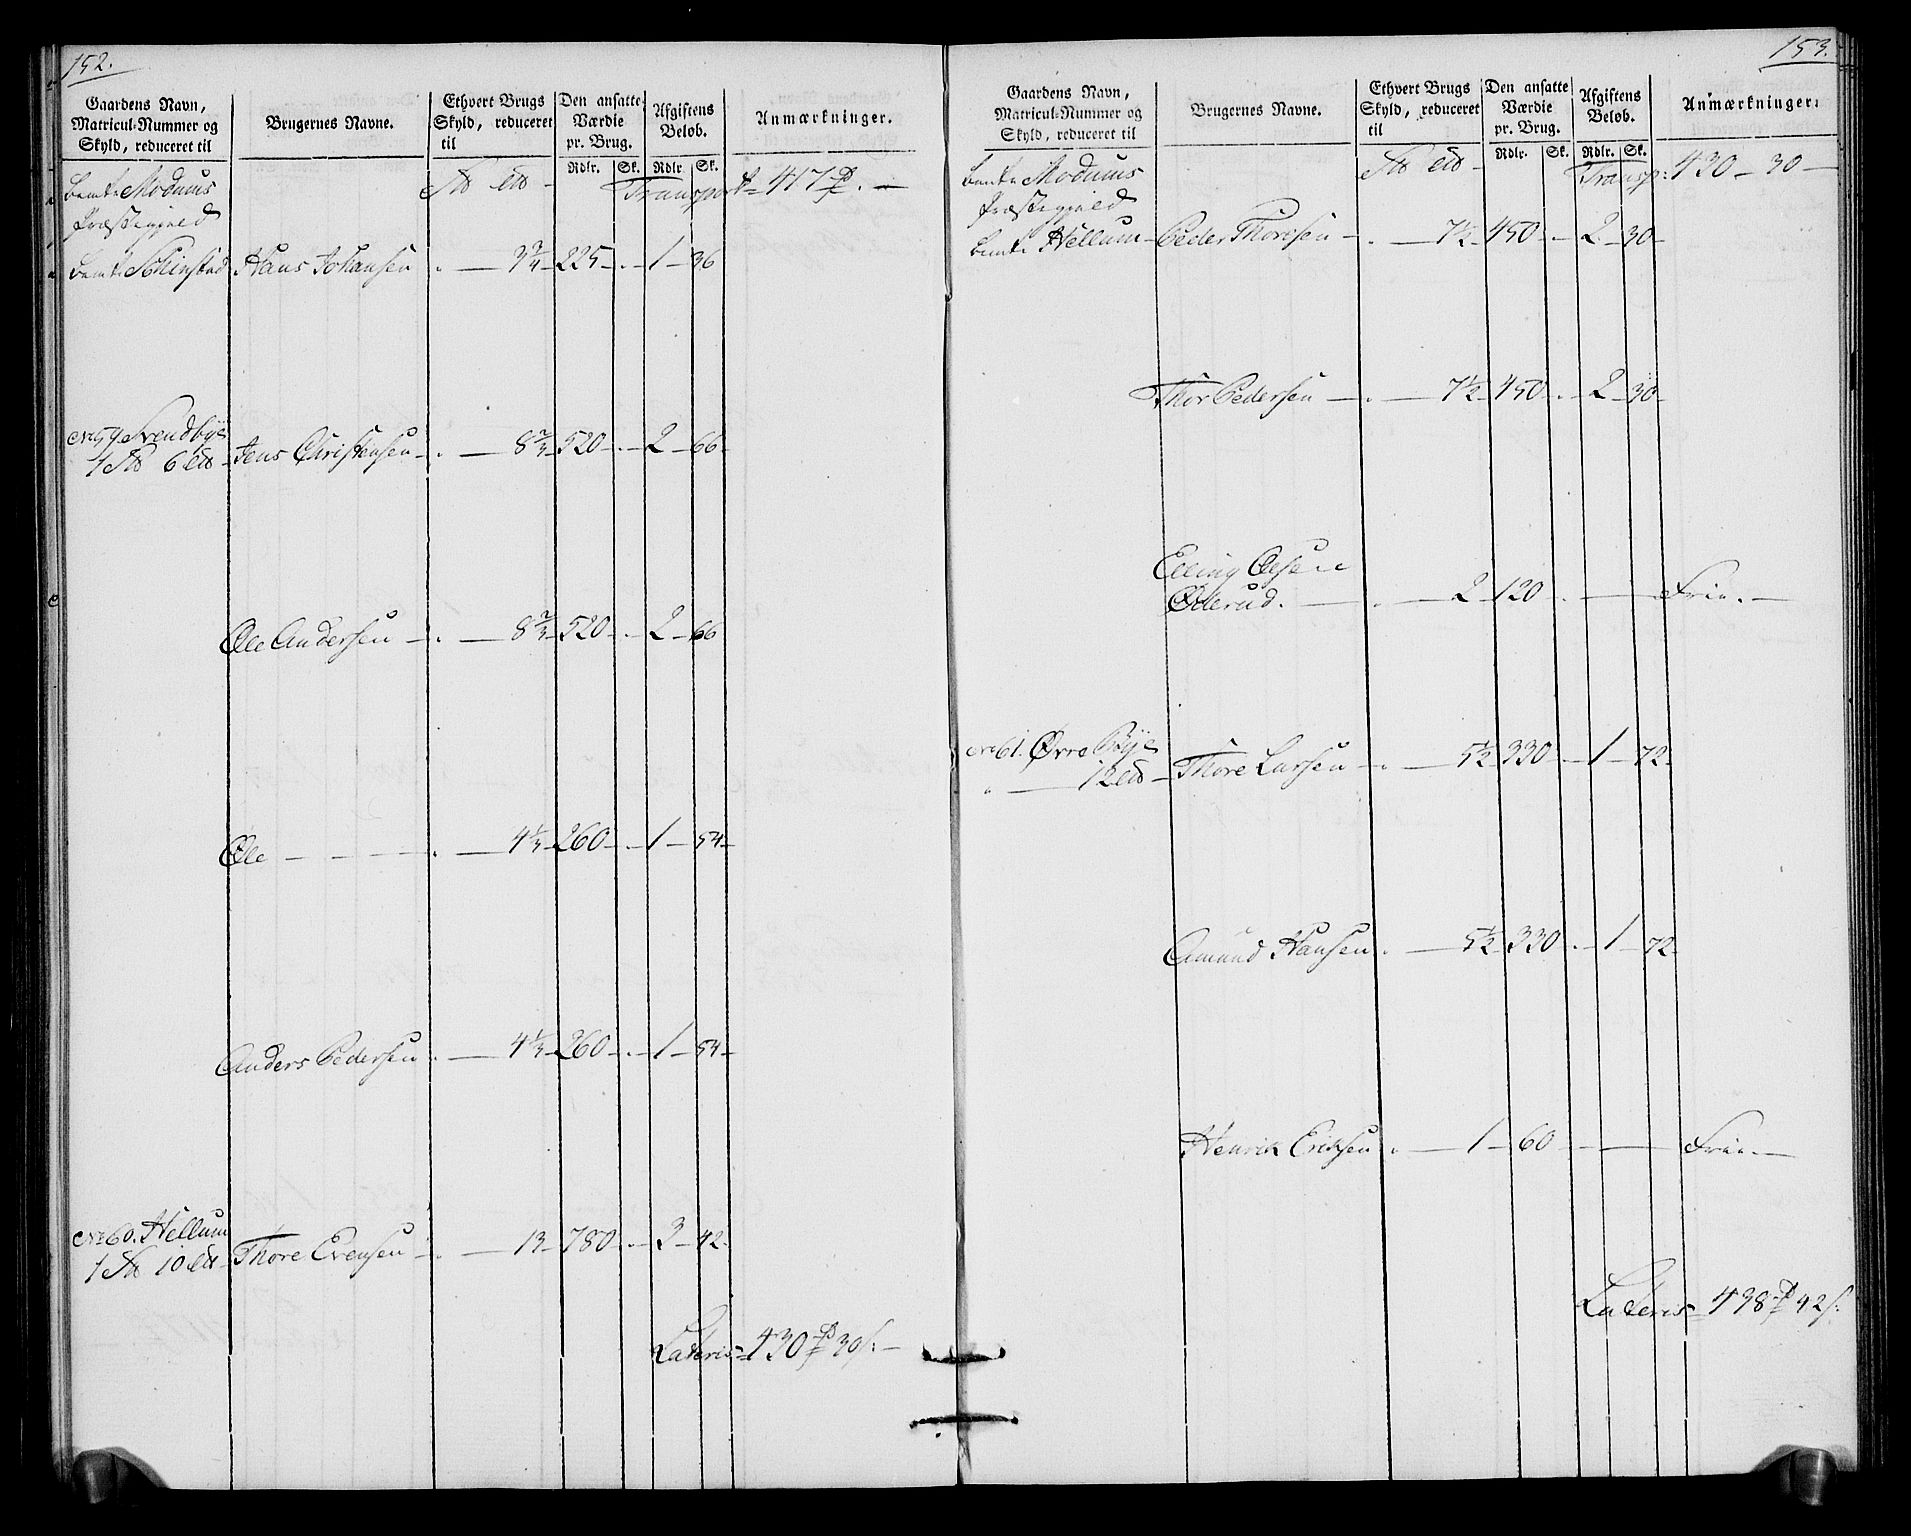 152.
Gaardens Navn, Matricul-Nummer og Skyld, reduceret til | Brugernes Navne. | Ethvert Brugs Skyld, reduceret til | Den ansatte Værdie pr. Brug. Rdlr. Sk. | Afgiftens Beløb. Rdlr. Sk. | Anmærkninger.
Modums Transport 417 —
Præstegjeld
Hans Johansen — 3 3/4 — 225 — 1 — 36
No 59 Svendbye
1 6 Jens Christensen — 8 2/3 — 520 — 2 — 66
Ole Andersen — 8 2/3 — 520 — 2 — 66
Ole — — — 4 1/3 — 260 — 1 — 54
Anders Pedersen — 4 1/3 — 260 — 1 — 54
No 60. Hellum
1 10 Thore Evensen — 13 — 780 — 3 — 42
Lateris 430 30 s:
153.
Gaardens Navn, Matricul-Nummer og Skyld, reduceret til | Brugernes Navne. | Ethvert Brugs Skyld, reduceret til | Den ansatte Værdie pr. Brug. Rdlr. Sk. | Afgiftens Beløb. Rdlr. Sk. | Anmærkninger:
Modums Transp: 430 — 30 —
Præstegjeld
Hellum — Peder Thoresen — 7 1/2 — 450 — 2 — 30
Thor Pedersen — 7 1/2 — 450 — 2 — 30
Elling Olsen
Øderud. — 2 — 120 — Frie. —
No 61. Øvre Bye
12 Thore Larsen — 5 1/2 — 330 — 1 — 72
Amund Hansen — 5 1/2 — 330 — 1 — 72
Henrik Eriksen — 1 — 60 — Frie. —
Lateris 438 42 s: